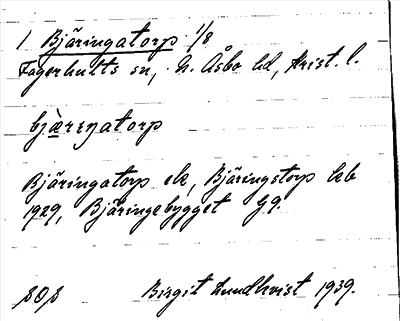 1 Bjäringatorp 1/8
Fagerhults sn, N. Åsbo hd, Krist. l.
bjæ̀rıŋatorp
Bjäringatorp ek, Bjäringstorp hb
1929, Bjäringebygget Gg.
Birgit Lundkvist 1939.